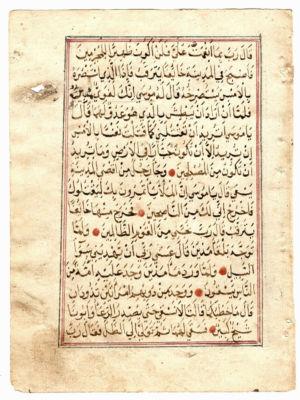 قال رب بما انعمت علي فلن اكون ظهيرا للمجرمين
فاصبح في المدينة خائفا يترقب فاذا الذي استنصره
بالامس يستصرخه قال له موسى انك لغوي مبين
فلما ان اراد ان يبطش بالذي هو عدو لهما قال
يا موسى اتريد ان تقتلني كما قتلت نفسا بالامس
ان تريد الا ان تكون جبارا في الارض وما تريد
ان تكون من المصلحين وجاء رجل من اقصى المدينة
يسعى قال يا موسى ان الملا ياتمرون بك ليقتلوك
فاخرج اني لك من الناصحين فخرج منها خائفا
يترقب قال رب نجني من القوم الظالمين ولما
توجه تلقاء مدين قال عسى ربي ان يهديني سواء
السبيل ولما ورد ماء مدين وجد عليه امة من
الناس يسقون ووجد من دونهم امراتين تذودان
قال ما خطبكما قالتا لا نسقي حتى يصدر الرعاء وابونا
شيخ كبير فسقى لهما ثم تولى الى الظل فقال رب